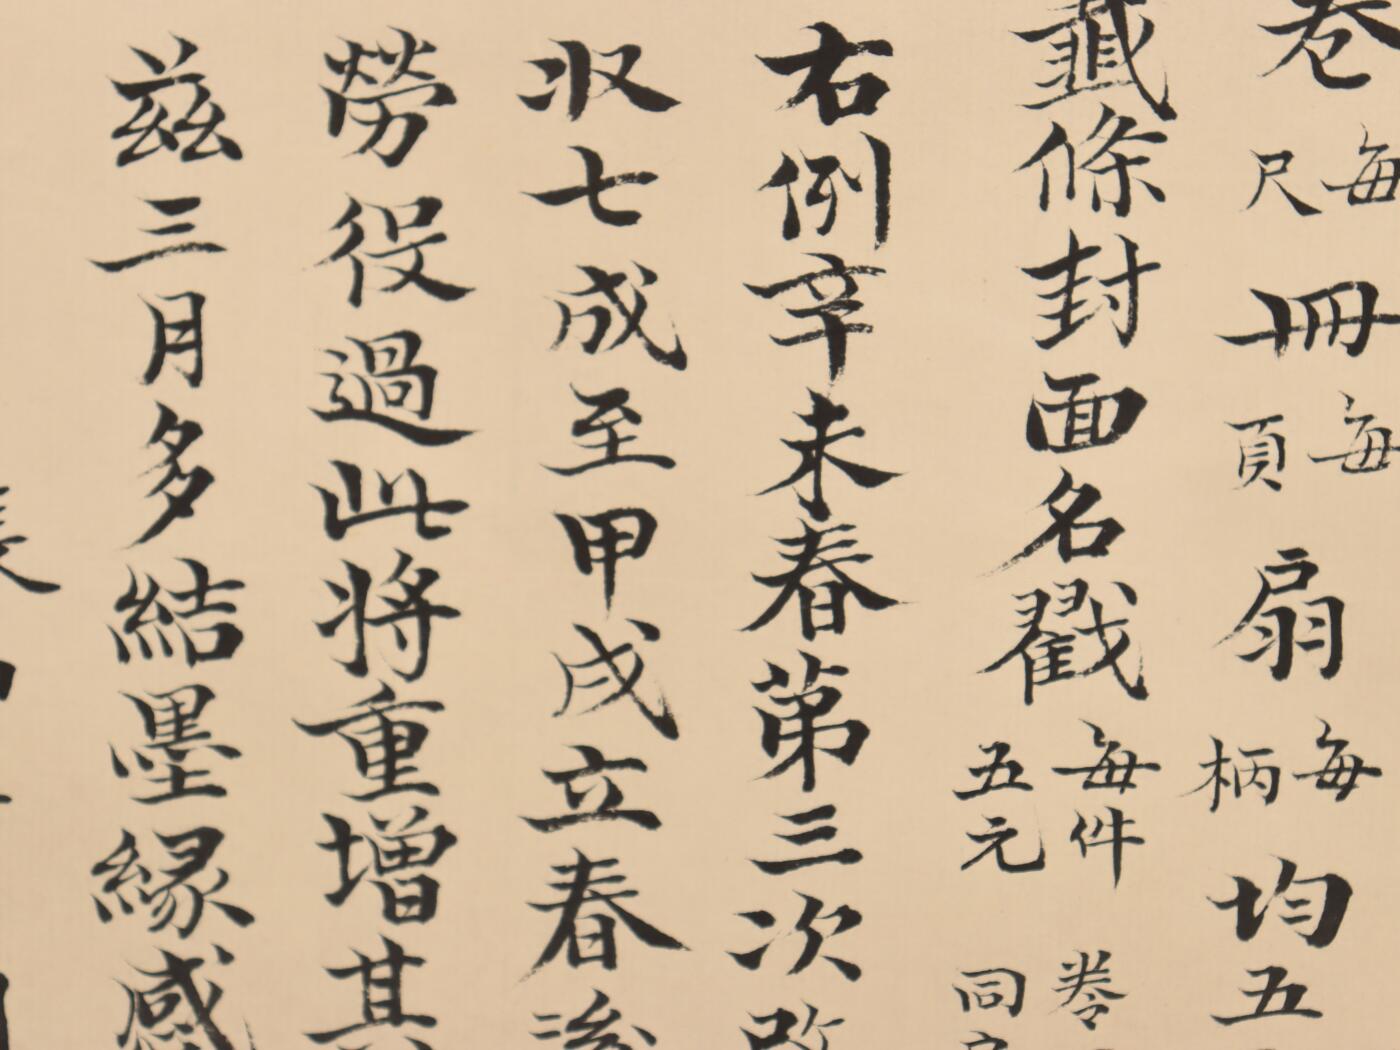 卷每尺冊每頁扇每柄均五
籤條封面名戳每件五元
右例辛未春第三次改
収七成至甲戌立春後
勞役過此将重增其
茲三月多結墨緣感